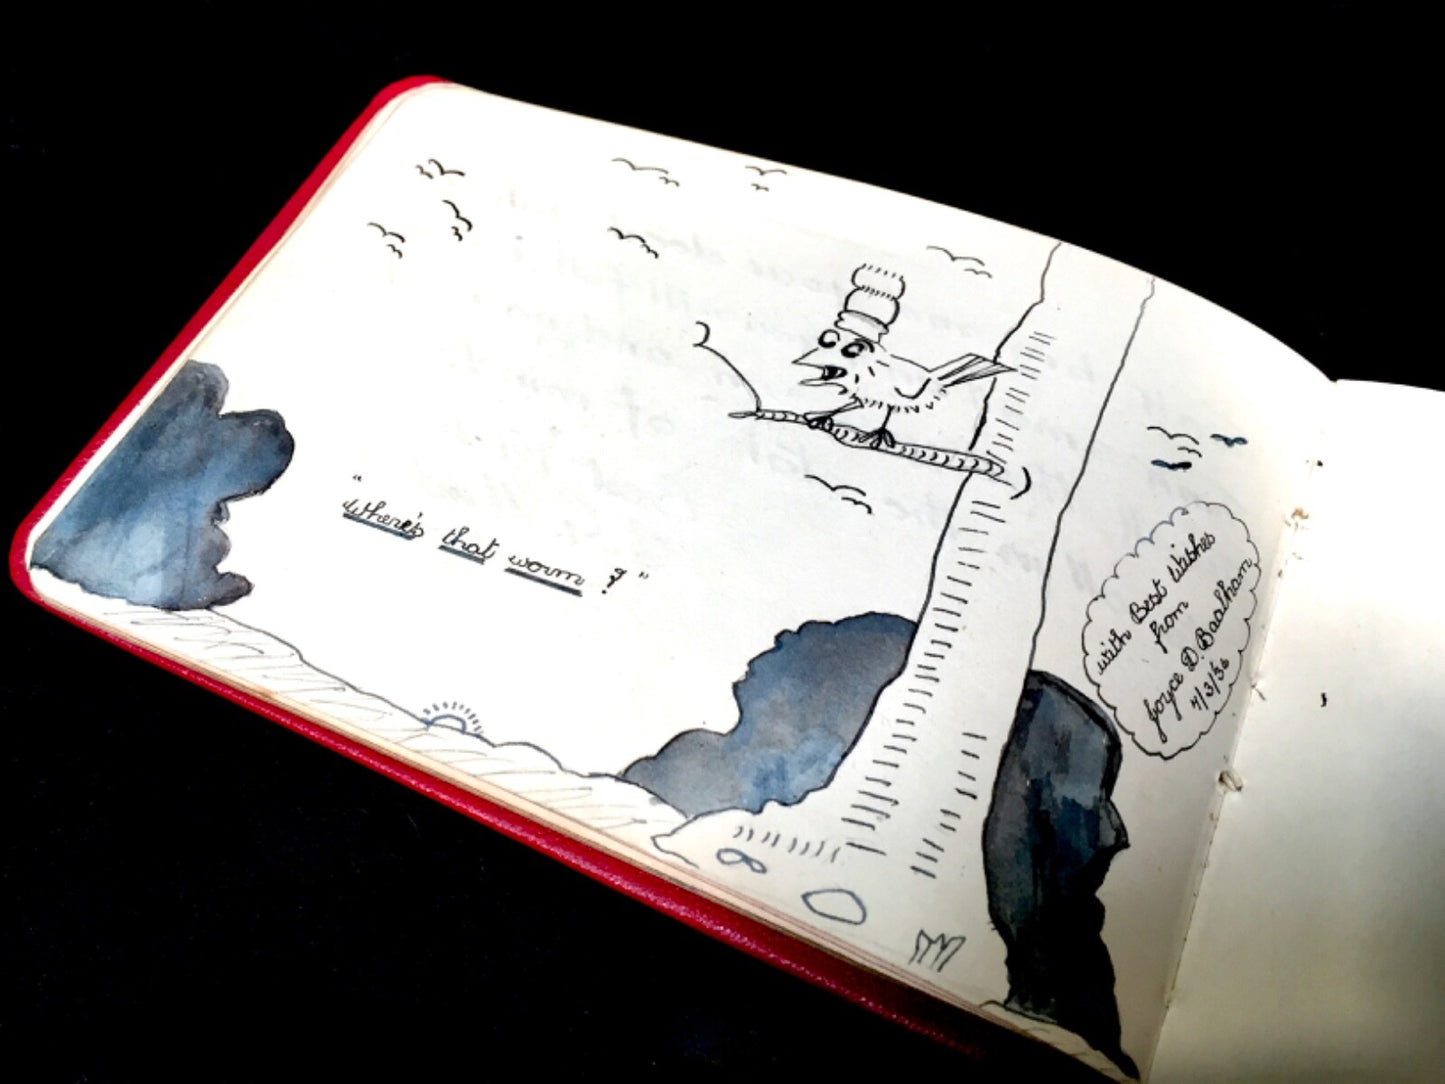 "Where's that worm?"
with Best Wishes
from
Joyce D. Baalham
7/3/36